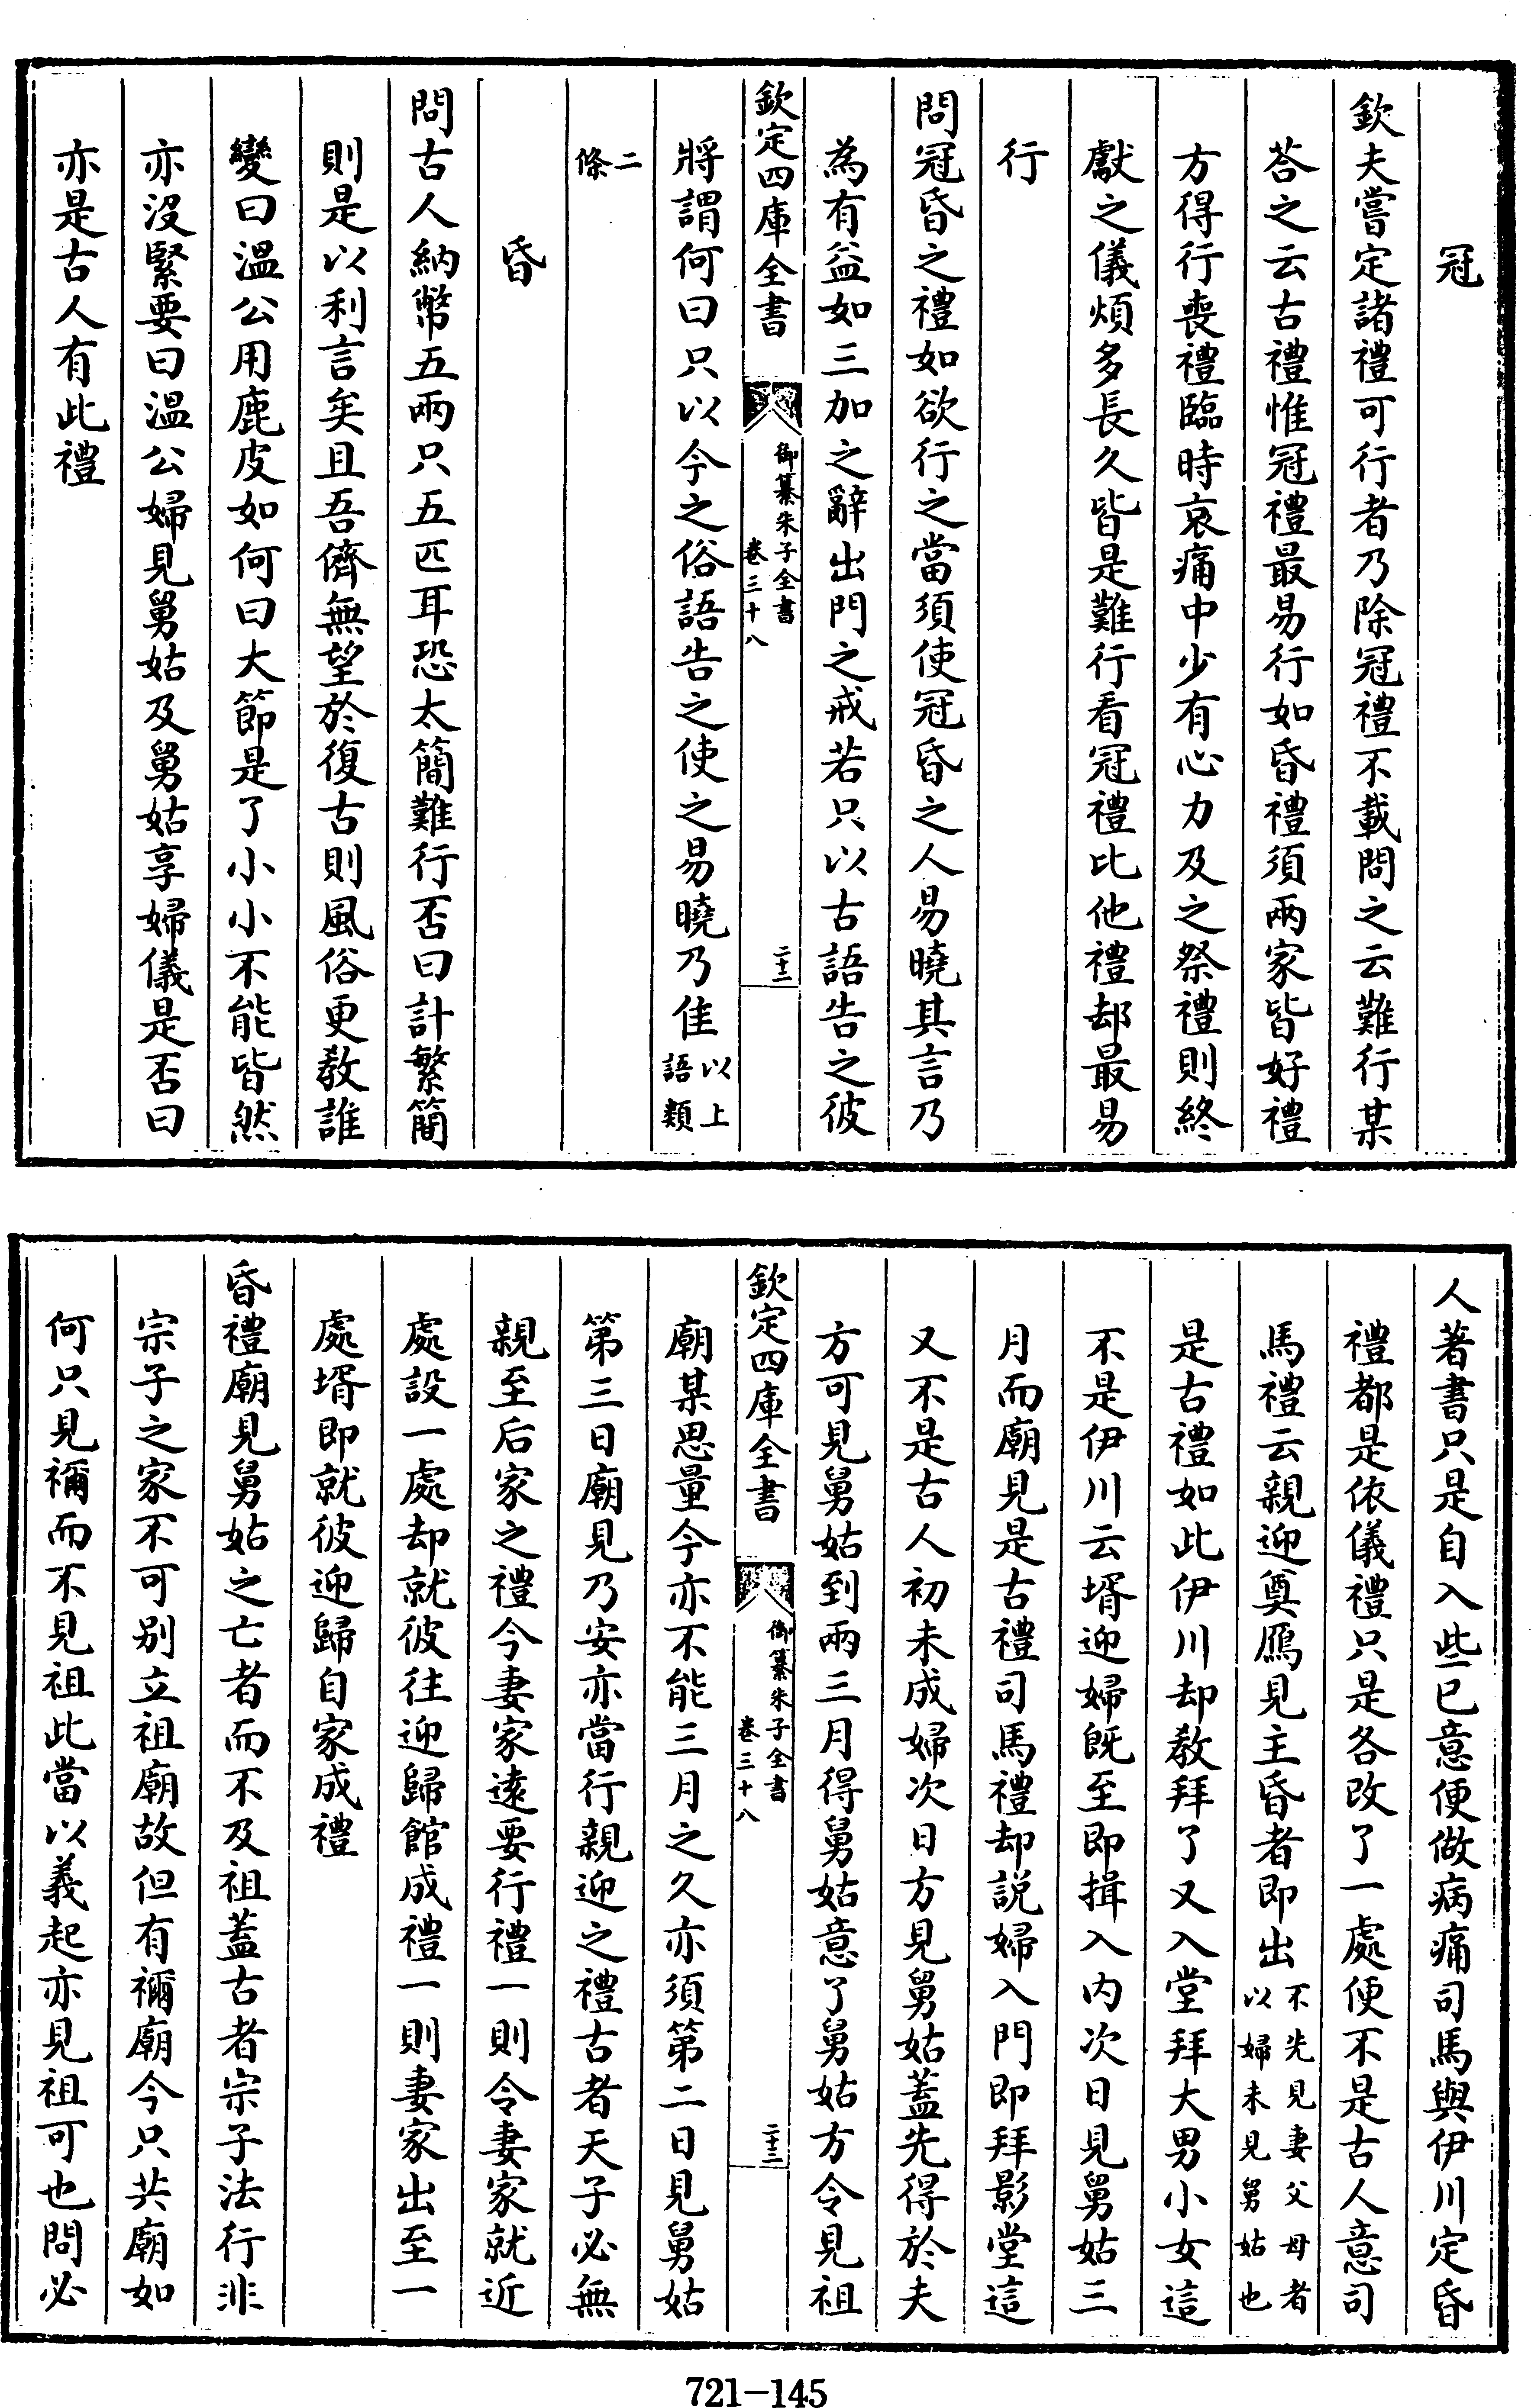 冠
欽夫嘗定諸禮可行者乃除冠禮不載問之云難行某
荅之云古禮惟冠禮最易行如昏禮須兩家皆好禮
方得行喪禮臨時哀痛中少有心力及之祭禮則終
獻之儀煩多長久皆是難行看冠禮比他禮却最易
行
問冠昏之禮如欲行之當須使冠昏之人易曉其言乃
為有益如三加之辭出門之戒若只以古語告之彼
欽定四庫全書
御纂朱子全書
卷三十八
二十二
將謂何曰只以今之俗語告之使之易曉乃佳以上
語類
二
條
昏
問古人納幣五兩只五匹耳恐太簡難行否曰計繁簡
則是以利言矣且吾儕無望於復古則風俗更教誰
變曰溫公用鹿皮如何曰大節是了小小不能皆然
亦沒緊要曰溫公婦見舅姑及舅姑享婦儀是否曰
亦是古人有此禮
人著書只是自入些已意便做病痛司馬與伊川定昏
禮都是依儀禮只是各改了一處便不是古人意司
馬禮云親迎奠鴈見主昏者即出不先見妻父母者
以婦未見舅姑也
是古禮如此伊川却教拜了又入堂拜大男小女這
不是伊川云壻迎婦既至即揖入內次日見舅姑三
月而廟見是古禮司馬禮却説婦入門即拜影堂這
又不是古人初未成婦次日方見舅姑蓋先得於夫
方可見舅姑到兩三月得舅姑意了舅姑方令見祖
欽定四庫全書
御纂朱子全書
卷三十八
二十三
廟某思量今亦不能三月之久亦須第二日見舅姑
第三日廟見乃安亦當行親迎之禮古者天子必無
親至后家之禮今妻家遠要行禮一則令妻家就近
處設一處却就彼往迎歸館成禮一則妻家出至一
處壻即就彼迎歸自家成禮
昏禮廟見舅姑之亡者而不及祖蓋古者宗子法行非
宗子之家不可别立祖廟故但有禰廟今只共廟如
何只見禰而不見祖此當以義起亦見祖可也問必
721-145